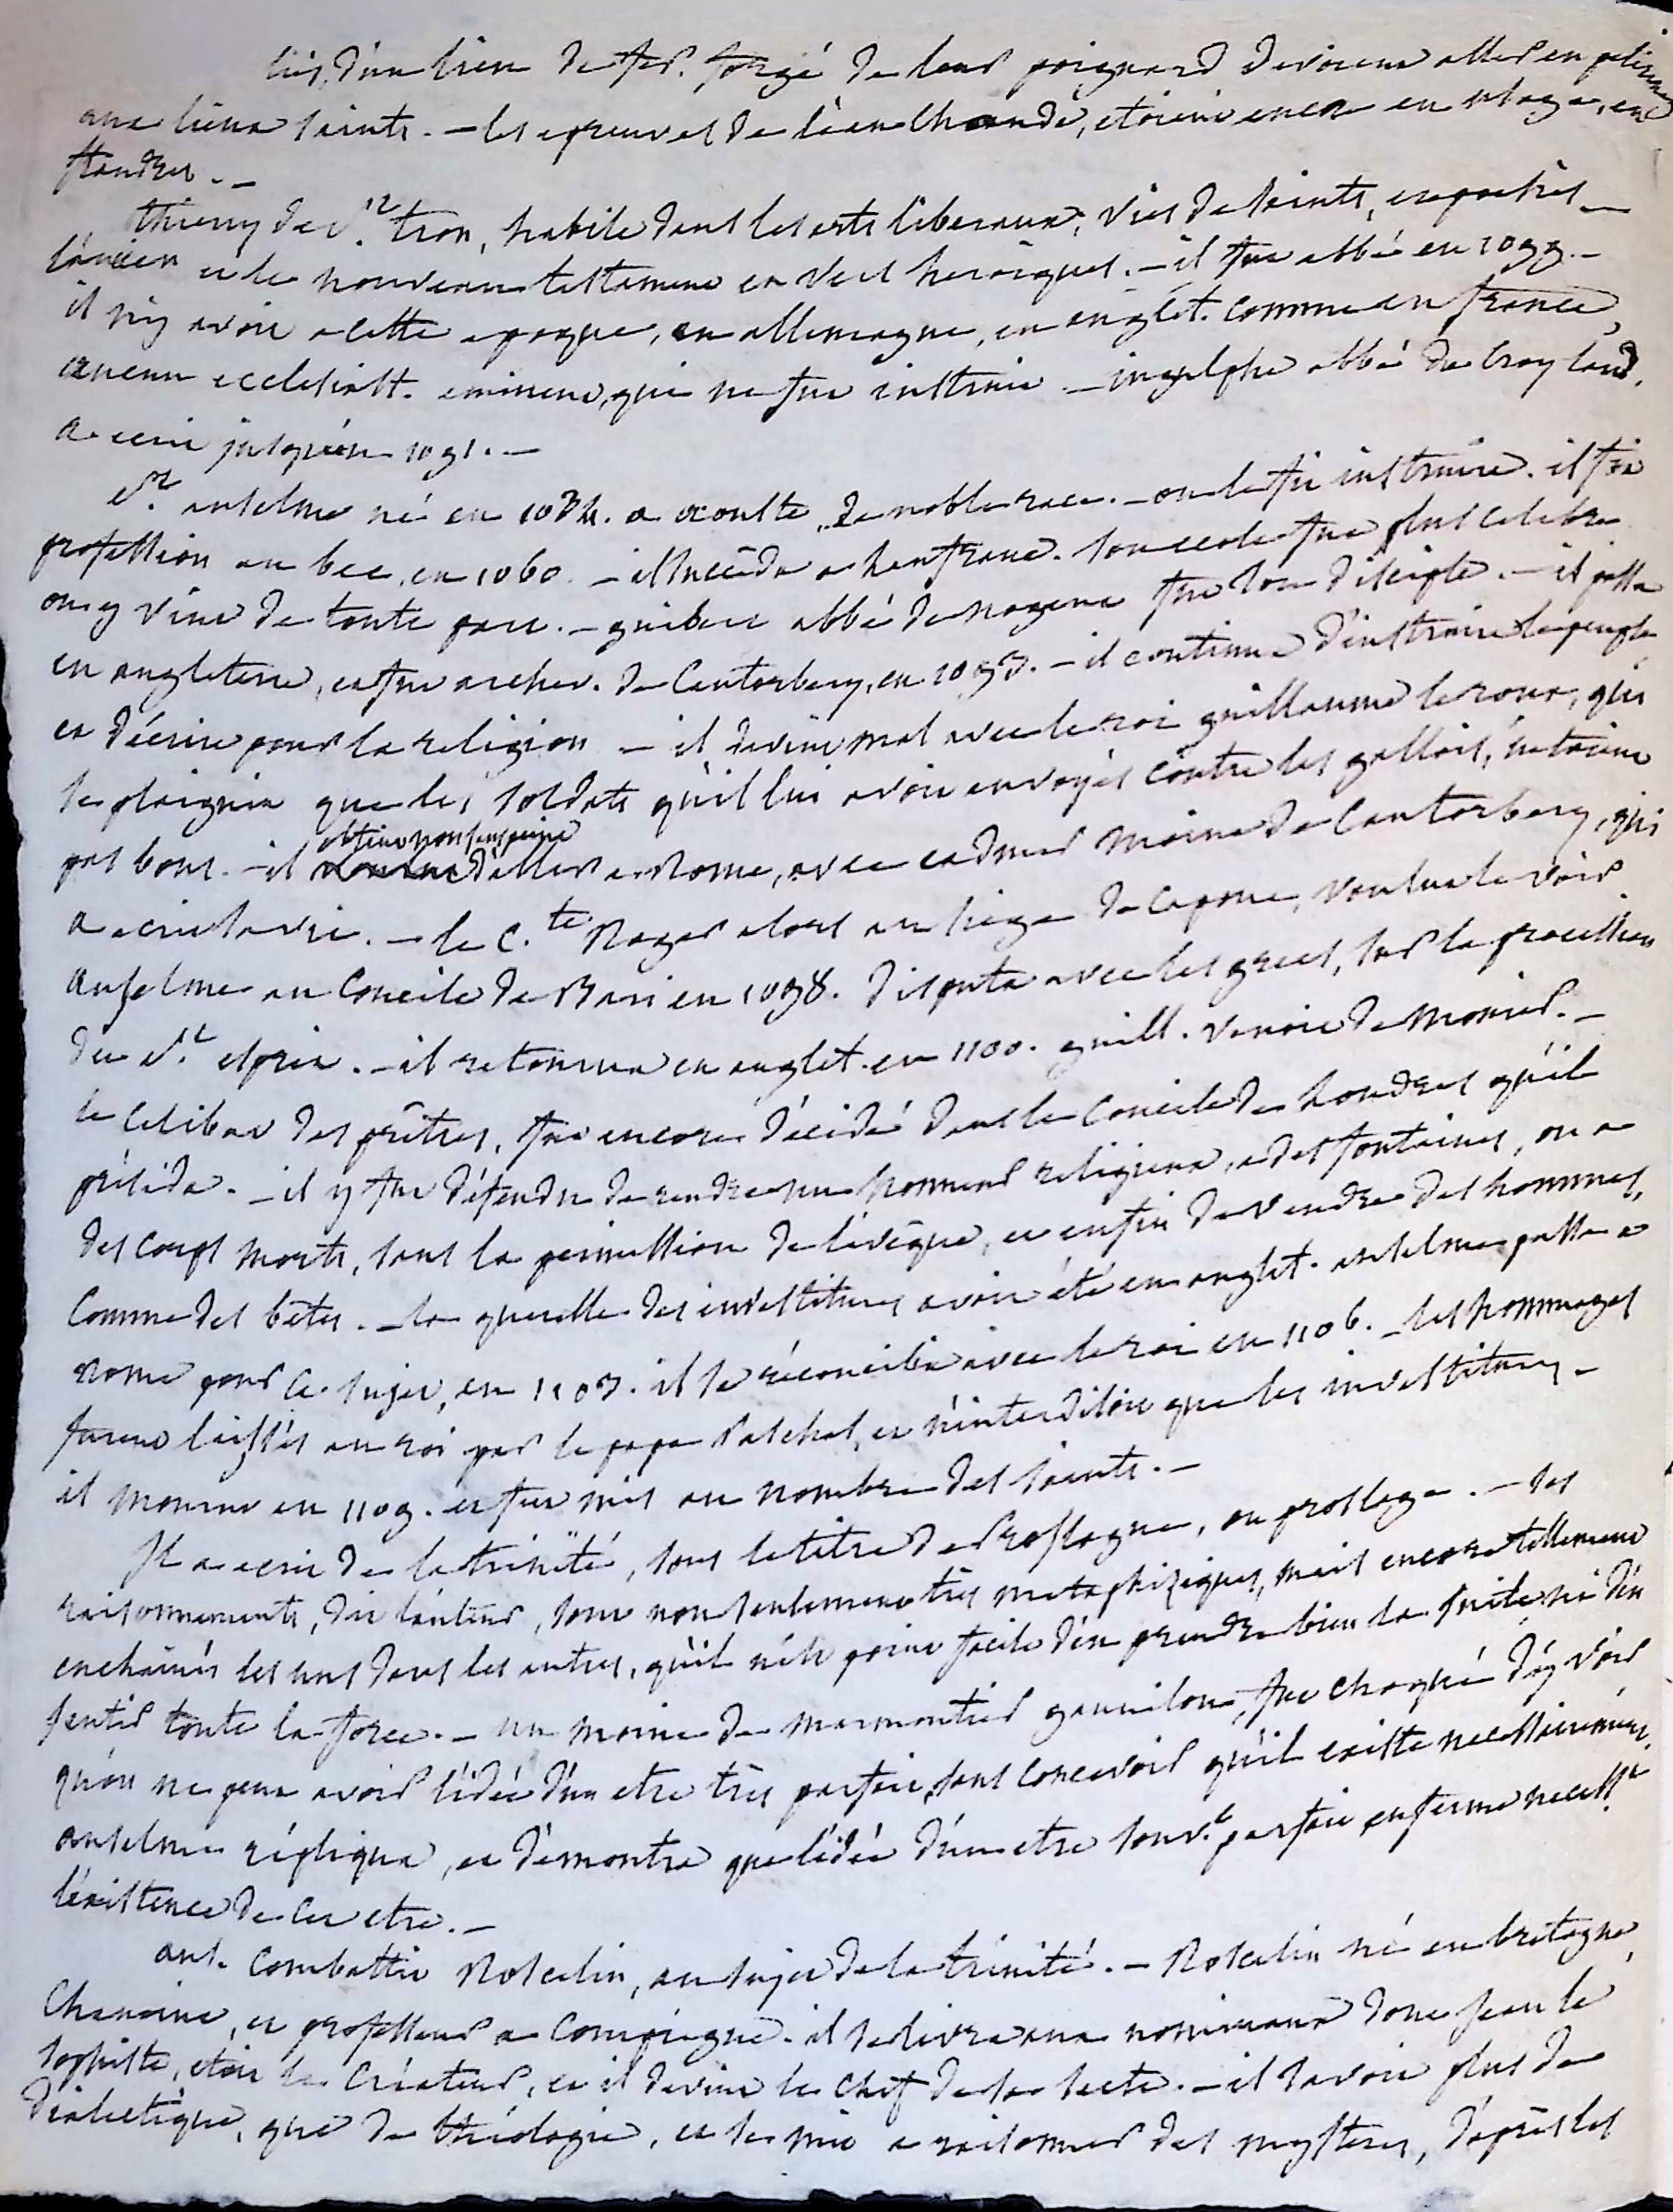 liés, d'un lien de fer. forgé de leur poignard devoient aller en pelerin.
aux lieux saints. — les epreuves de l'eau chaude, etoient encor en usage, en
flandres. —
thierry de St. tron, habile dans les arts liberaux, vies de saints, en poesies —
l'ancien et le nouveau testament en vers heroiques. — il fut abbé en 1099. —
il n'y avoit a cette epoque, en allemagne, en anglet. comme en france,
aucun ecclesiast. eminent, qui ne fut instruit — ingulphe abbé de croyland.
a ecrit jusqu'en 1091. —
St. anselme né en 1034. a aoulte, de noble race. — on le fit instruire. il fit
profession au bec, en 1060. — il succéda a lanfranc. son ecole fut plus celebre
on y vint de toute part. — guibert abbé de nogent fut son disciple. — il passa
en angleterre, et fut archev. de Cantorbery, en 1093. — il continua d'instruire le peuple
et d'écrire pour la religion — il devint mal avec le roi guillaume le roux, qui
se plaignit que les soldats qu'il lui avoit envoyés contre les gallois, n'etoient
pas bons. — il obtint non sans peine d'aller a Rome, avec eadmer moine de Cantorbery, qui
a ecrit sa vie. — le C.te Roger alors au siege de Capoue, voulut le voir
anselme au Concile de Bari en 1098. disputa avec les grecs, sur la procession
du St. esprit. — il retourna en anglet. en 1100. guill. venoit de mourir. —
le celibat des prêtres, fut encore décidé dans le Concile de Londres qu'il
présida. — il y fut défendu de rendre un honneur religieux, a des fontaines, ou a
des corps morts, sans la permission de l'evêque, et enfin de vendre des hommes,
comme des bêtes. — la querelle des investitures avoit été en anglet. anselme passa a
rome pour ce sujet, en 1103. il se réconcilia avec le roi en 1106. — les hommages
furent laissés au roi par le pape Paschal, et n'interdisoit que les investitures —
il mourut en 1109. et fut mis au nombre des saints. —
Il a ecrit de la trinité, sous le titre de Proslogue, ou proslege. — ses
raisonnements, dit l'auteur, sont non seulement très metaphisiques, mais encore tellement
enchainés les uns dans les autres, qu'il n'est point facile d'en prendre bien la suite ni d'en
sentir toute la force. — un moine de marmontier gaunilon, fut choqué d'y voir
qu'on ne peut avoir l'idée d'un etre très parfait, sans concevoir qu'il existe necessairement.
anselme répliqua, et démontra que l'idée d'un etre souv.t parfait enferme necess.t
l'existence de cet etre. —
ans. combattit Roscelin, au sujet de la trinité. — Roscelin né en bretagne,
Chanoine, et professeur a Compiegne. il se livra aux nominaux dont jean le
sophiste, etoit le Créateur, et il devint le chef de sa secte. — il savoit plus de
dialectique, que de théologie, et se mit a raisonner des mysteres, d'après les